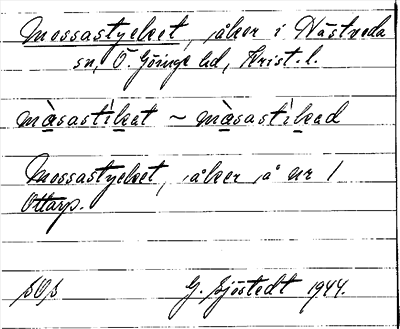 Mossastycket, åker i Hästveda
sn, Ö. Göinge hd, Krist. l.
màsastìkat ~ màsastìkad
Mossastycket, åker å nr 1
Ottarp.
SOS G. Sjöstedt 1944.